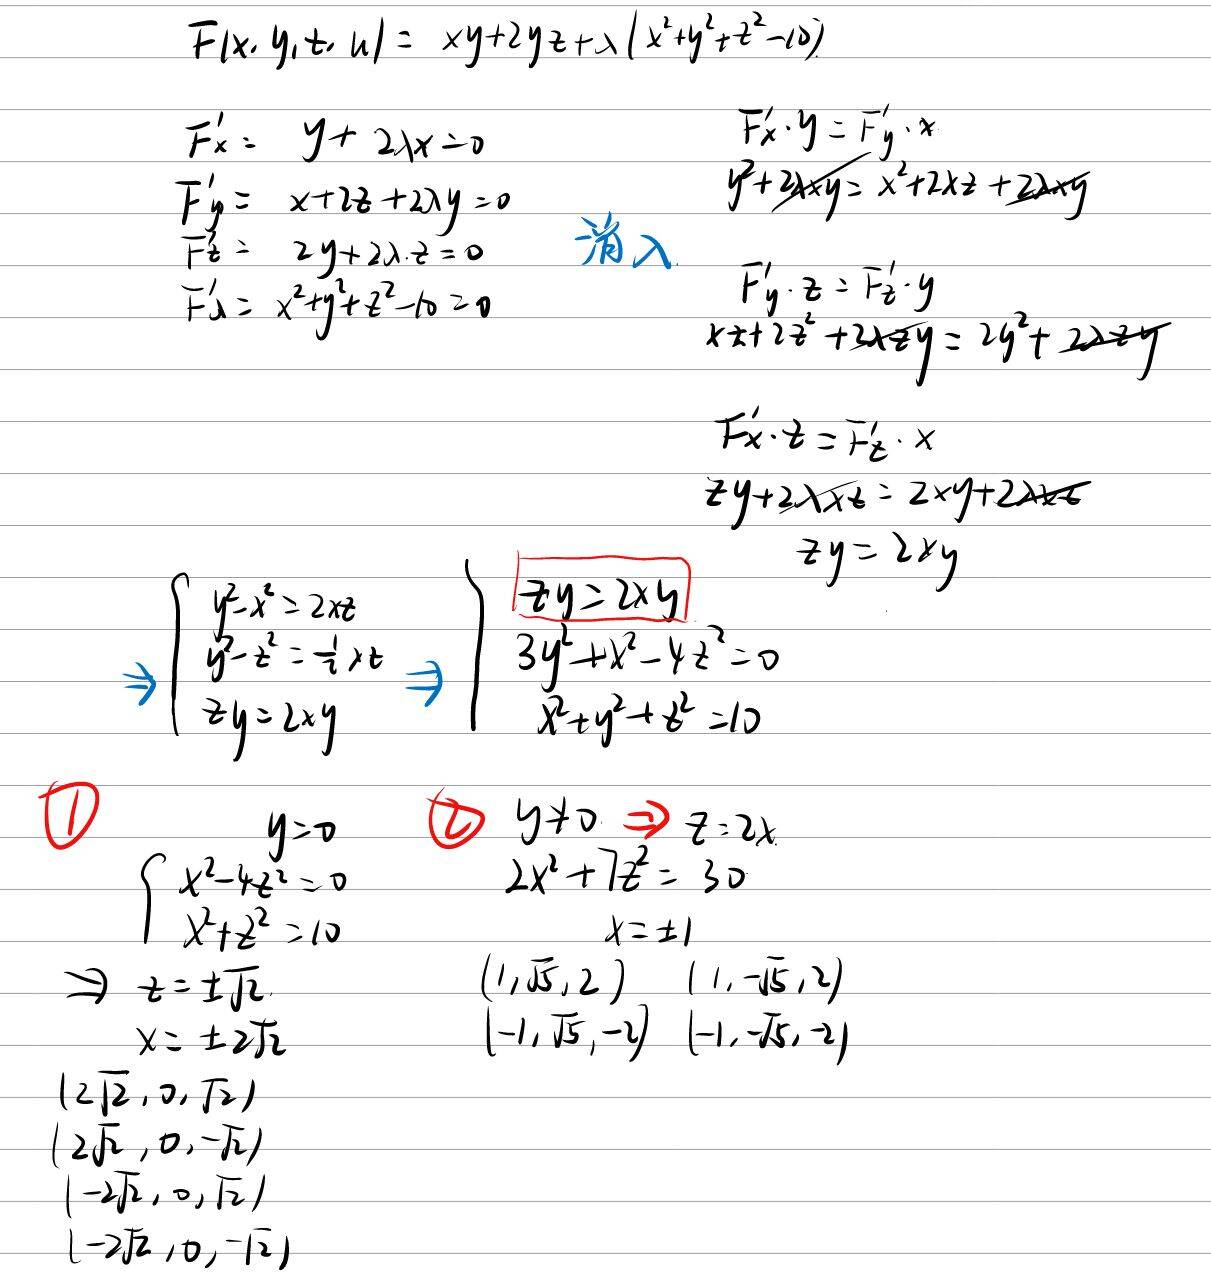 F(x, y, z, u) = xy+2yz+λ(x²+y²+z²-10)
F'x = y + 2λx = 0
F'y = x+2z+2λy = 0
F'z = 2y+2λ·z = 0
F'λ = x²+y²+z²-10 = 0
消 λ.
F'x·y = F'y·x
y²+2λxy = x²+2xz+2λxy
F'y·z = F'z·y
xz+2z²+2λzy = 2y²+2λzy
F'x·z = F'z·x
zy+2λxz = 2xy+2λxz
zy = 2xy
⇒ { y²-x² = 2xz
y²-z² = ½xz
zy = 2xy
⇒ { zy = 2xy
3y²+x²-4z² = 0
x²+y²+z² = 10
① y=0
{ x²-4z² = 0
x²+z² = 10
⇒ z = ±√2.
x = ±2√2
(2√2, 0, √2)
(2√2, 0, -√2)
(-2√2, 0, √2)
(-2√2, 0, -√2)
② y≠0. ⇒ z=2x
2x²+7z² = 30
x = ±1
(1, √5, 2) (1, -√5, 2)
(-1, √5, -2) (-1, -√5, -2)